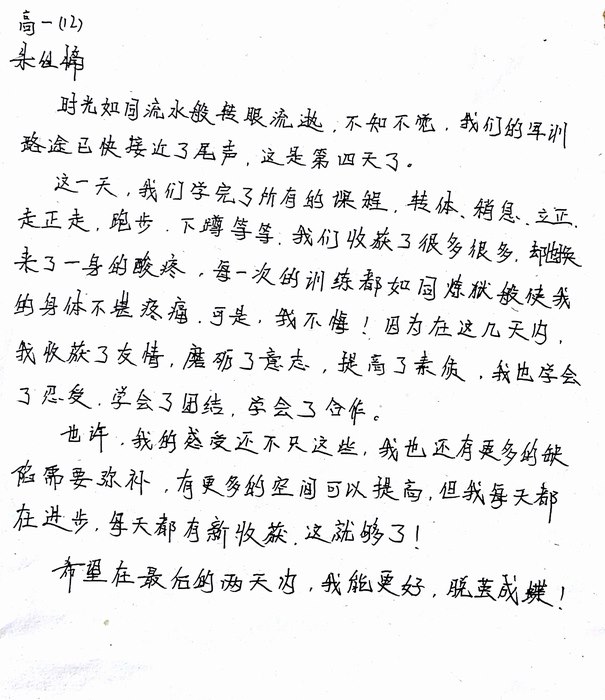 高一(12)
朱
时光如同流水般转眼流逝，不知不觉，我们的军训
路途已快接近了尾声，这是第四天了。
这一天，我们学完了所有的课程，转体、稍息、立正、
走正走，跑步、下蹲等等，我们收获了很多很多，却也换
来了一身的酸疼，每一次的训练都如同炼狱般使我
的身体不堪疼痛，可是，我不悔！因为在这几天内，
我收获了友情，磨砺了意志，提高了素质，我也学会
了忍受，学会了团结，学会了合作。
也许，我的感受还不只这些，我也还有更多的缺
陷需要弥补，有更多的空间可以提高，但我每天都
在进步，每天都有新收获，这就够了！
希望在最后的两天内，我能更好，脱茧成蝶！